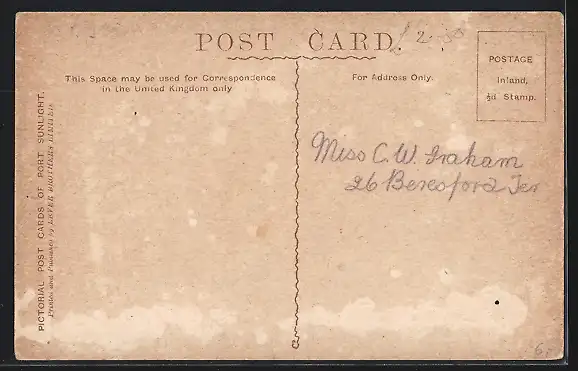 POST CARD.
£2-50
This Space may be used for Correspondence
in the United Kingdom only
For Address Only.
POSTAGE
Inland,
½d Stamp.
Miss C. W. Graham
26 Beresford Ter
PICTORIAL POST CARDS OF PORT SUNLIGHT.
Printed and Published by LEVER BROTHERS LIMITED